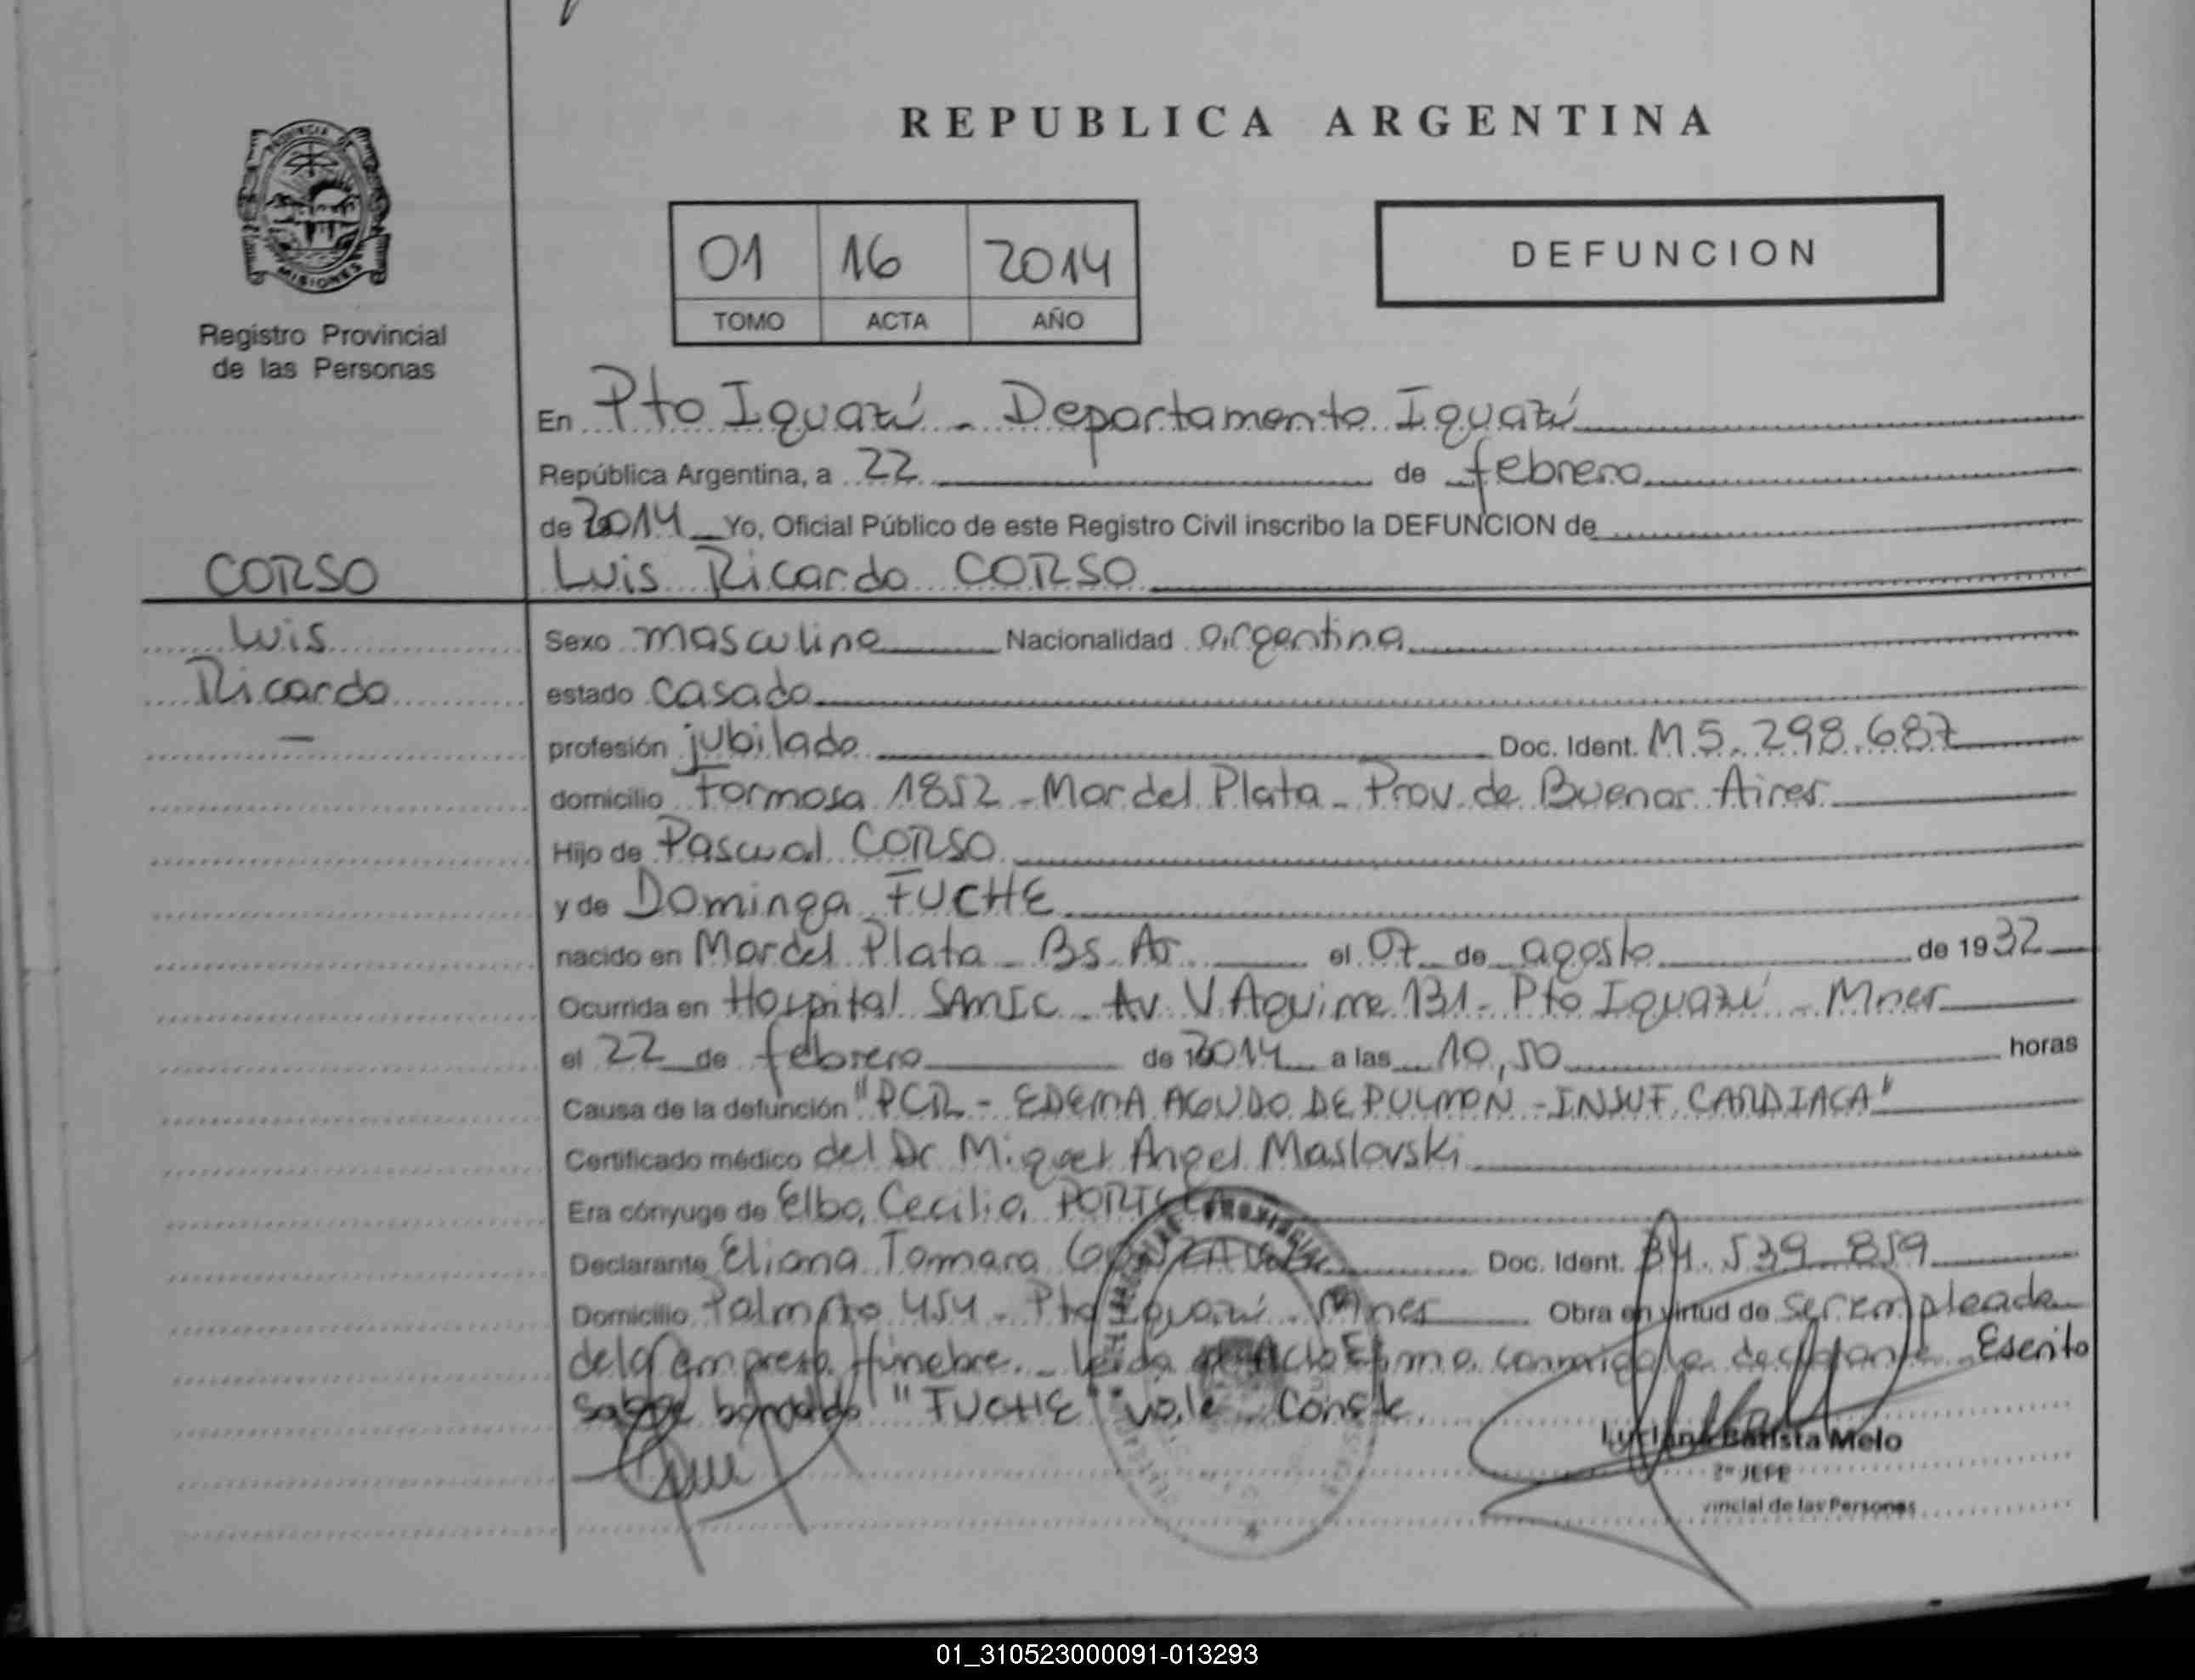 REPUBLICA ARGENTINA
PROVINCIA DE
MISIONES
Registro Provincial
de las Personas
01 16 2014
TOMO ACTA AÑO
DEFUNCION
En Pto Iguazú - Departamento Iguazú
República Argentina, a 22 de febrero
de 2014 Yo, Oficial Público de este Registro Civil inscribo la DEFUNCION de
CORSO
Luis Ricardo CORSO
Luis
Ricardo
Sexo masculino Nacionalidad argentina
estado casado
profesión jubilado Doc. Ident. M 5.298.687
domicilio Formosa 1852 - Mar del Plata - Prov. de Buenos Aires
Hijo de Pascual CORSO
y de Dominga FUCHE
nacido en Mar del Plata - Bs. As. el 07 de agosto de 1932
Ocurrida en Hospital SAMIC - Av. V. Aguirre 131 - Pto Iguazú - Mnes
el 22 de febrero de 2014 a las 10,50 horas
Causa de la defunción "PCR - EDEMA AGUDO DE PULMON - INSUF. CARDIACA"
Certificado médico del Dr Miguel Angel Maslovski
Era cónyuge de Elba Cecilia
Declarante Eliana Tamara Doc. Ident. 34.539.859
Domicilio Palmito 454 - Pto Iguazú - Mnes Obra en virtud de ser empleada
de la empresa fúnebre. - Leida el Acta Firma conmigo la declarante - Escrito
sobre borrado "FUCHE" vale. Conste
Luciana Batista Melo
2º JEFE
vincial de las Personas
01_310523000091-013293